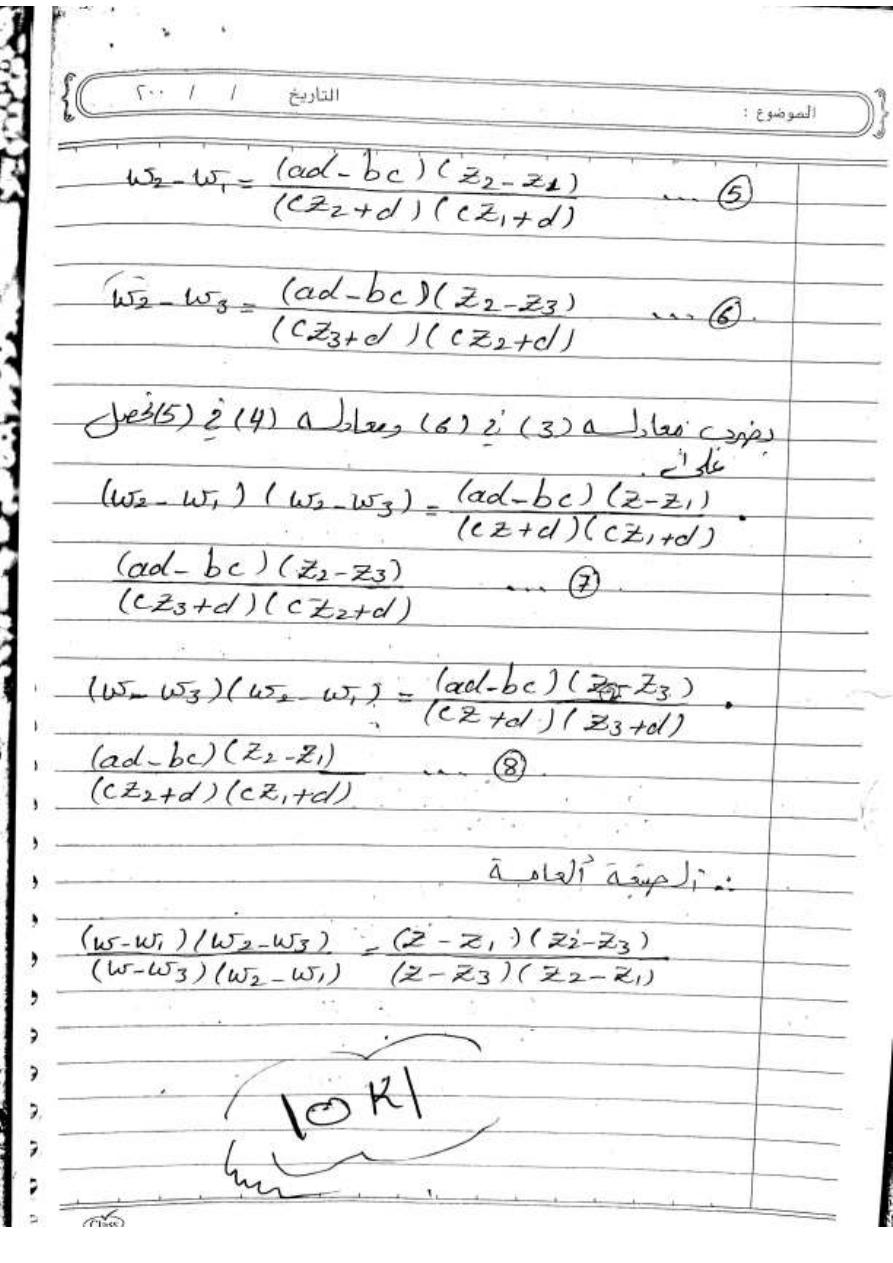 الموضوع : التاريخ / / ٢٠٠
w₂ - w₁ = (ad - bc)(z₂ - z₁) / (cz₂ + d)(cz₁ + d) .... ⑤
w₂ - w₃ = (ad - bc)(z₂ - z₃) / (cz₃ + d)(cz₂ + d) .... ⑥
بضرب معادله (3) في (6) ومعادله (4) في (5) نحصل
على
(w₂ - w₁)(w₂ - w₃) = (ad - bc)(z - z₁) / (cz + d)(cz₁ + d) .
(ad - bc)(z₂ - z₃) / (cz₃ + d)(cz₂ + d) .... ⑦
(w - w₃)(w₂ - w₁) = (ad - bc)( - z₃) / (cz + d)(z₃ + d) .
(ad - bc)(z₂ - z₁) / (cz₂ + d)(cz₁ + d) .... ⑧
∴ الصيغة العامة
(w - w₁)(w₂ - w₃) / (w - w₃)(w₂ - w₁) = (z - z₁)(z₂ - z₃) / (z - z₃)(z₂ - z₁)
OK
Class